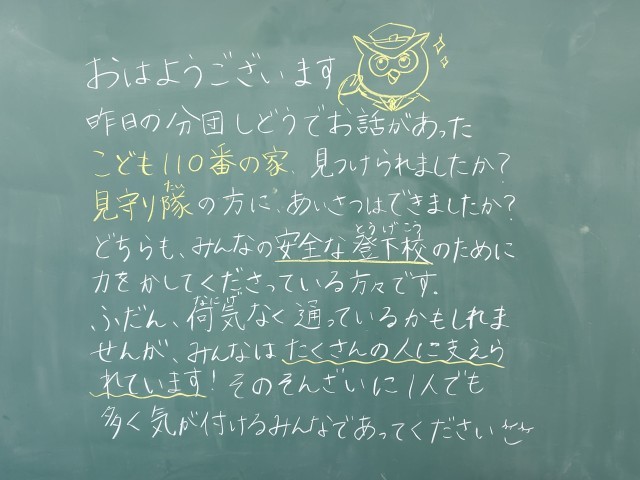 おはようございます
昨日の分団しどうでお話があった
こども110番の家、見つけられましたか?
見守り隊の方に、あいさつはできましたか?
どちらも、みんなの安全な登下校のために
力をかしてくださっている方々です.
ふだん、荷気なく通っているかもしれま
せんが、みんなはたくさんの人に支えら
れています!そのそんざいに1人でも
多く気が付けるみんなであってください